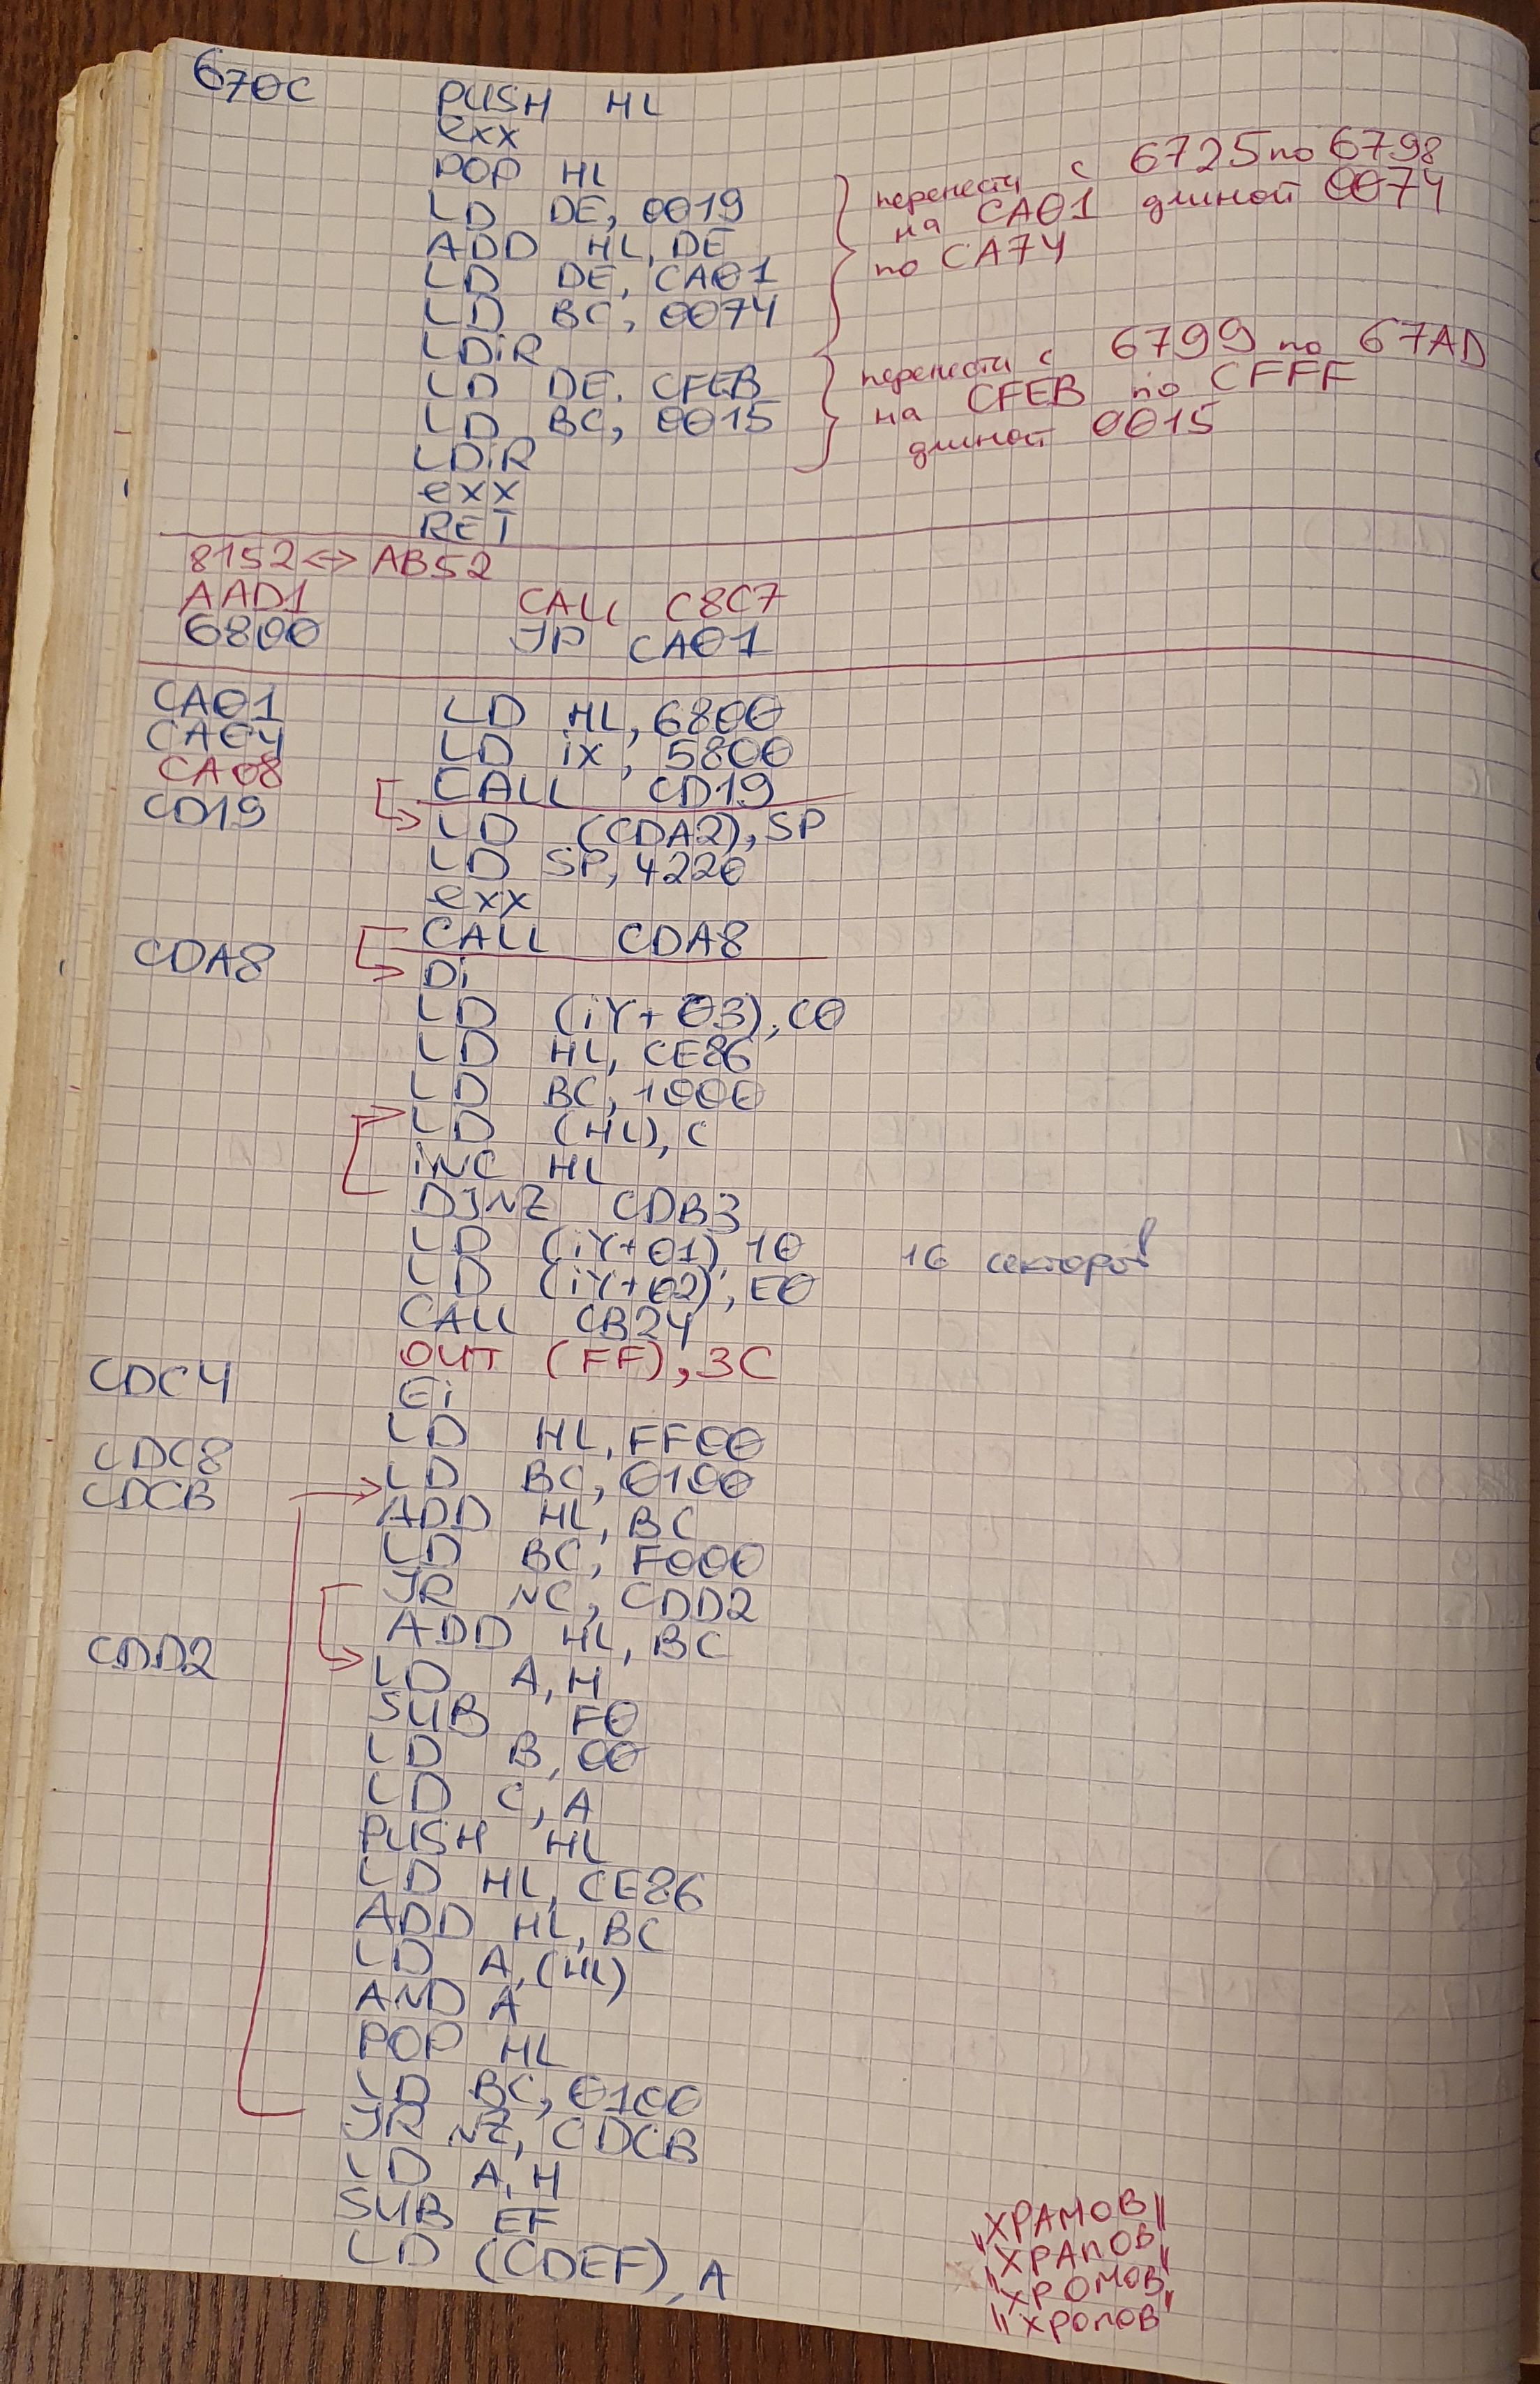 670C PUSH HL
exx
POP HL
LD DE, 0019
ADD HL, DE
LD DE, CA01
LD BC, 0074
LDiR
LD DE, CFEB
LD BC, 0015
LDiR
exx
RET
перенести с 6725 по 6798
на CA01 длиной 0074
по CA74
перенести с 6799 по 67AD
на CFEB по CFFF
длиной 0015
8152 <=> AB52
AAD1 CALL C8C7
6800 JP CA01
CA01 LD HL, 6800
CA04 LD iX, 5800
CA08 CALL CD19
CD19 LD (CDA2), SP
LD SP, 4220
exx
CALL CDA8
CDA8 Di
LD (iY+03), C0
LD HL, CE86
LD BC, 1000
LD (HL), C
iNC HL
DJNZ CDB3
LD (iY+01), 10 16 секторов!
LD (iY+02), E0
CALL CB24
OUT (FF), 3C
CDC4 Ei
LD HL, FF00
CDC8 LD BC, 0100
CDCB ADD HL, BC
LD BC, F000
JR NC, CDD2
ADD HL, BC
CDD2 LD A, H
SUB F0
LD B, 00
LD C, A
PUSH HL
LD HL, CE86
ADD HL, BC
LD A, (HL)
AND A
POP HL
LD BC, 0100
JR NZ, CDCB
LD A, H
SUB EF
LD (CDEF), A
"ХРАМОВ"
"ХРАПОВ"
"ХРОМОВ"
"ХРОПОВ"